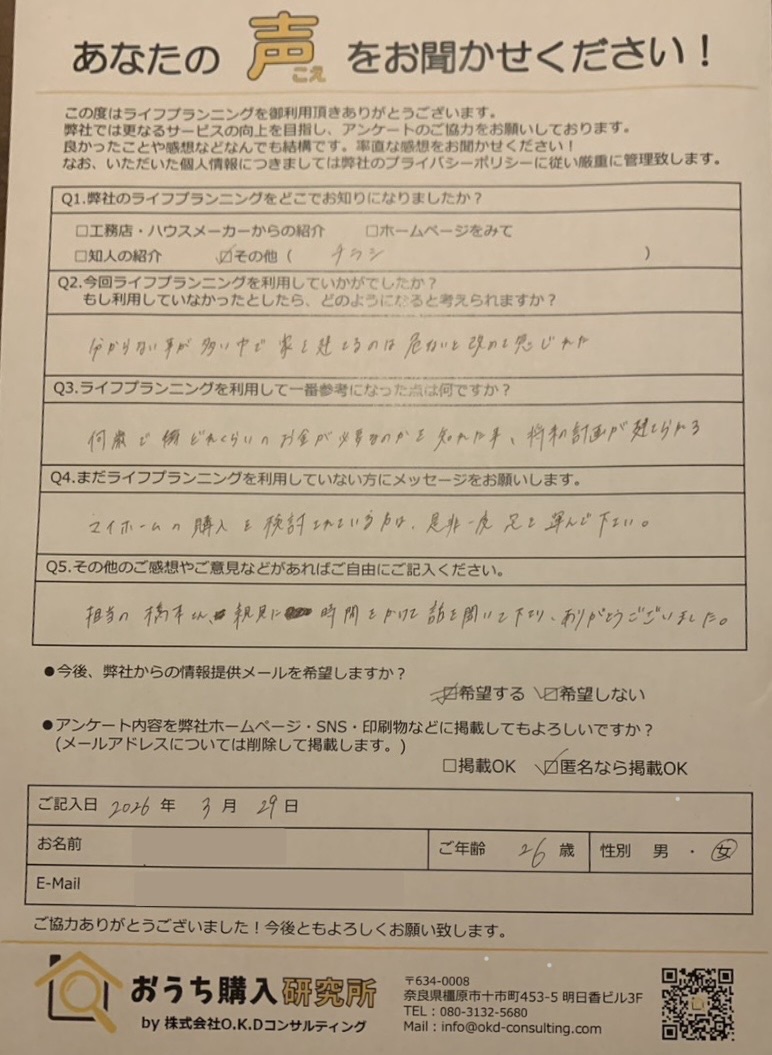 あなたの 声 をお聞かせください！
こえ
この度はライフプランニングを御利用頂きありがとうございます。
弊社では更なるサービスの向上を目指し、アンケートのご協力をお願いしております。
良かったことや感想などなんでも結構です。率直な感想をお聞かせください！
なお、いただいた個人情報につきましては弊社のプライバシーポリシーに従い厳重に管理致します。
Q1.弊社のライフプランニングをどこでお知りになりましたか？
□工務店・ハウスメーカーからの紹介 □ホームページをみて
□知人の紹介 ☑その他（ チラシ ）
Q2.今回ライフプランニングを利用していかがでしたか？
もし利用していなかったとしたら、どのようになると考えられますか？
分からない事が多い中で家を建てるのは危ないと改めて感じれた
Q3.ライフプランニングを利用して一番参考になった点は何ですか？
何歳で どれくらいのお金が必要なのかを知れた事、将来計画が建てられる
Q4.まだライフプランニングを利用していない方にメッセージをお願いします。
マイホームの購入を検討されている方は、是非一度足を運んで下さい。
Q5.その他のご感想やご意見などがあればご自由にご記入ください。
担当の橋本さん、親見に 時間をかけて話を聞いて下さり、ありがとうございました。
●今後、弊社からの情報提供メールを希望しますか？
☑希望する ☑希望しない
●アンケート内容を弊社ホームページ・SNS・印刷物などに掲載してもよろしいですか？
(メールアドレスについては削除して掲載します。)
□掲載OK ☑匿名なら掲載OK
ご記入日 2026 年 3 月 29 日
お名前 ご年齢 26 歳 性別 男 ・ 女
E-Mail
ご協力ありがとうございました！今後ともよろしくお願い致します。
おうち購入研究所
by 株式会社O.K.Dコンサルティング
〒634-0008
奈良県橿原市十市町453-5 明日香ビル3F
TEL：080-3132-5680
Mail：info@okd-consulting.com